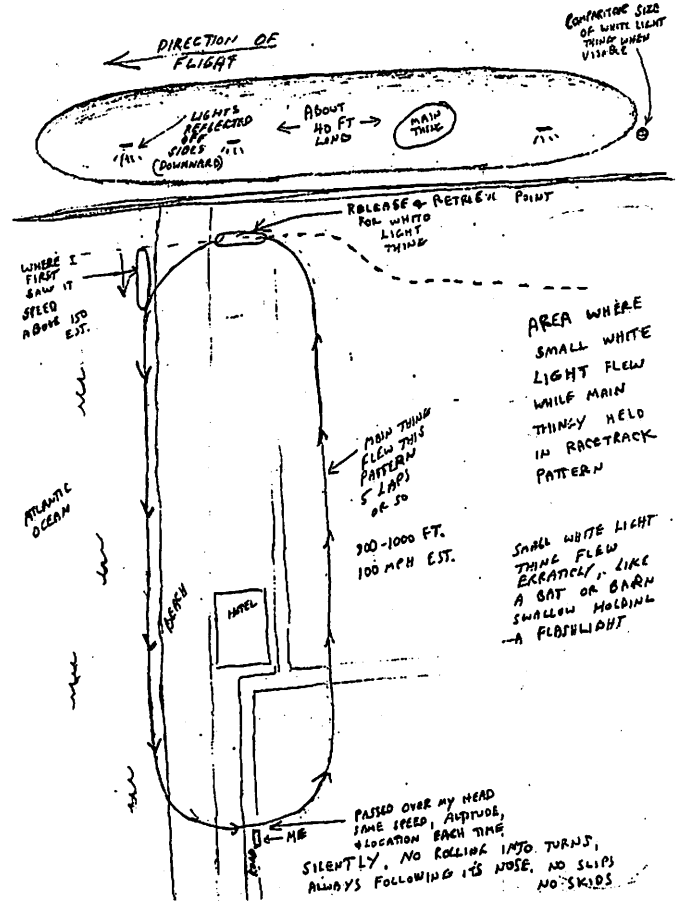 COMPARITIVE SIZE
OF WHITE LIGHT
THING WHEN
VISABLE
DIRECTION OF
FLIGHT
LIGHTS
REFLECTED
OFF
SIDES
(DOWNWARD)
ABOUT
40 FT
LONG
MAIN
THING
RELEASE & RETRIEVE POINT
FOR WHITE
LIGHT
THING
WHERE I
FIRST
SAW IT
SPEED
ABOVE 150
EST.
AREA WHERE
SMALL WHITE
LIGHT FLEW
WHILE MAIN
THINGY HELD
IN RACETRACK
PATTERN
MAIN THING
FLEW THIS
PATTERN
5 LAPS
OR SO
900-1000 FT.
100 MPH EST.
ATLANTIC
OCEAN
SMALL WHITE LIGHT
THING FLEW
ERRATICLY, LIKE
A BAT OR BARN
SWALLOW HOLDING
A FLASHLIGHT
BEACH
HOTEL
PASSED OVER MY HEAD
SAME SPEED, ALTITUDE,
& LOCATION EACH TIME
ME
ROAD
SILENTLY, NO ROLLING INTO TURNS,
ALWAYS FOLLOWING IT'S NOSE, NO SLIPS
NO SKIDS